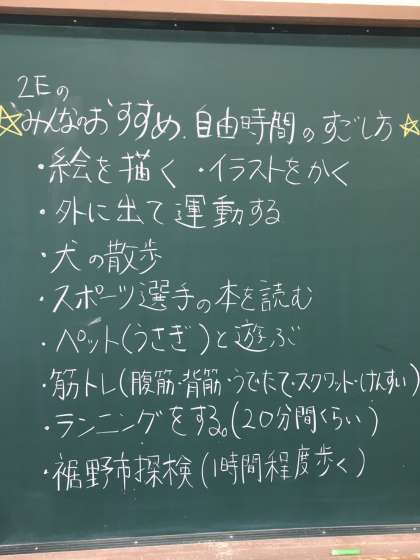 2Eの
☆みんなのおすすめ.自由時間のすごし方☆
・絵を描く ・イラストをかく
・外に出て運動する
・犬の散歩
・スポーツ選手の本を読む
・ペット(うさぎ)と遊ぶ
・筋トレ(腹筋・背筋・うでたて・スクワット・けんすい)
・ランニングをする。(20分間くらい)
・裾野市探検(1時間程度歩く)